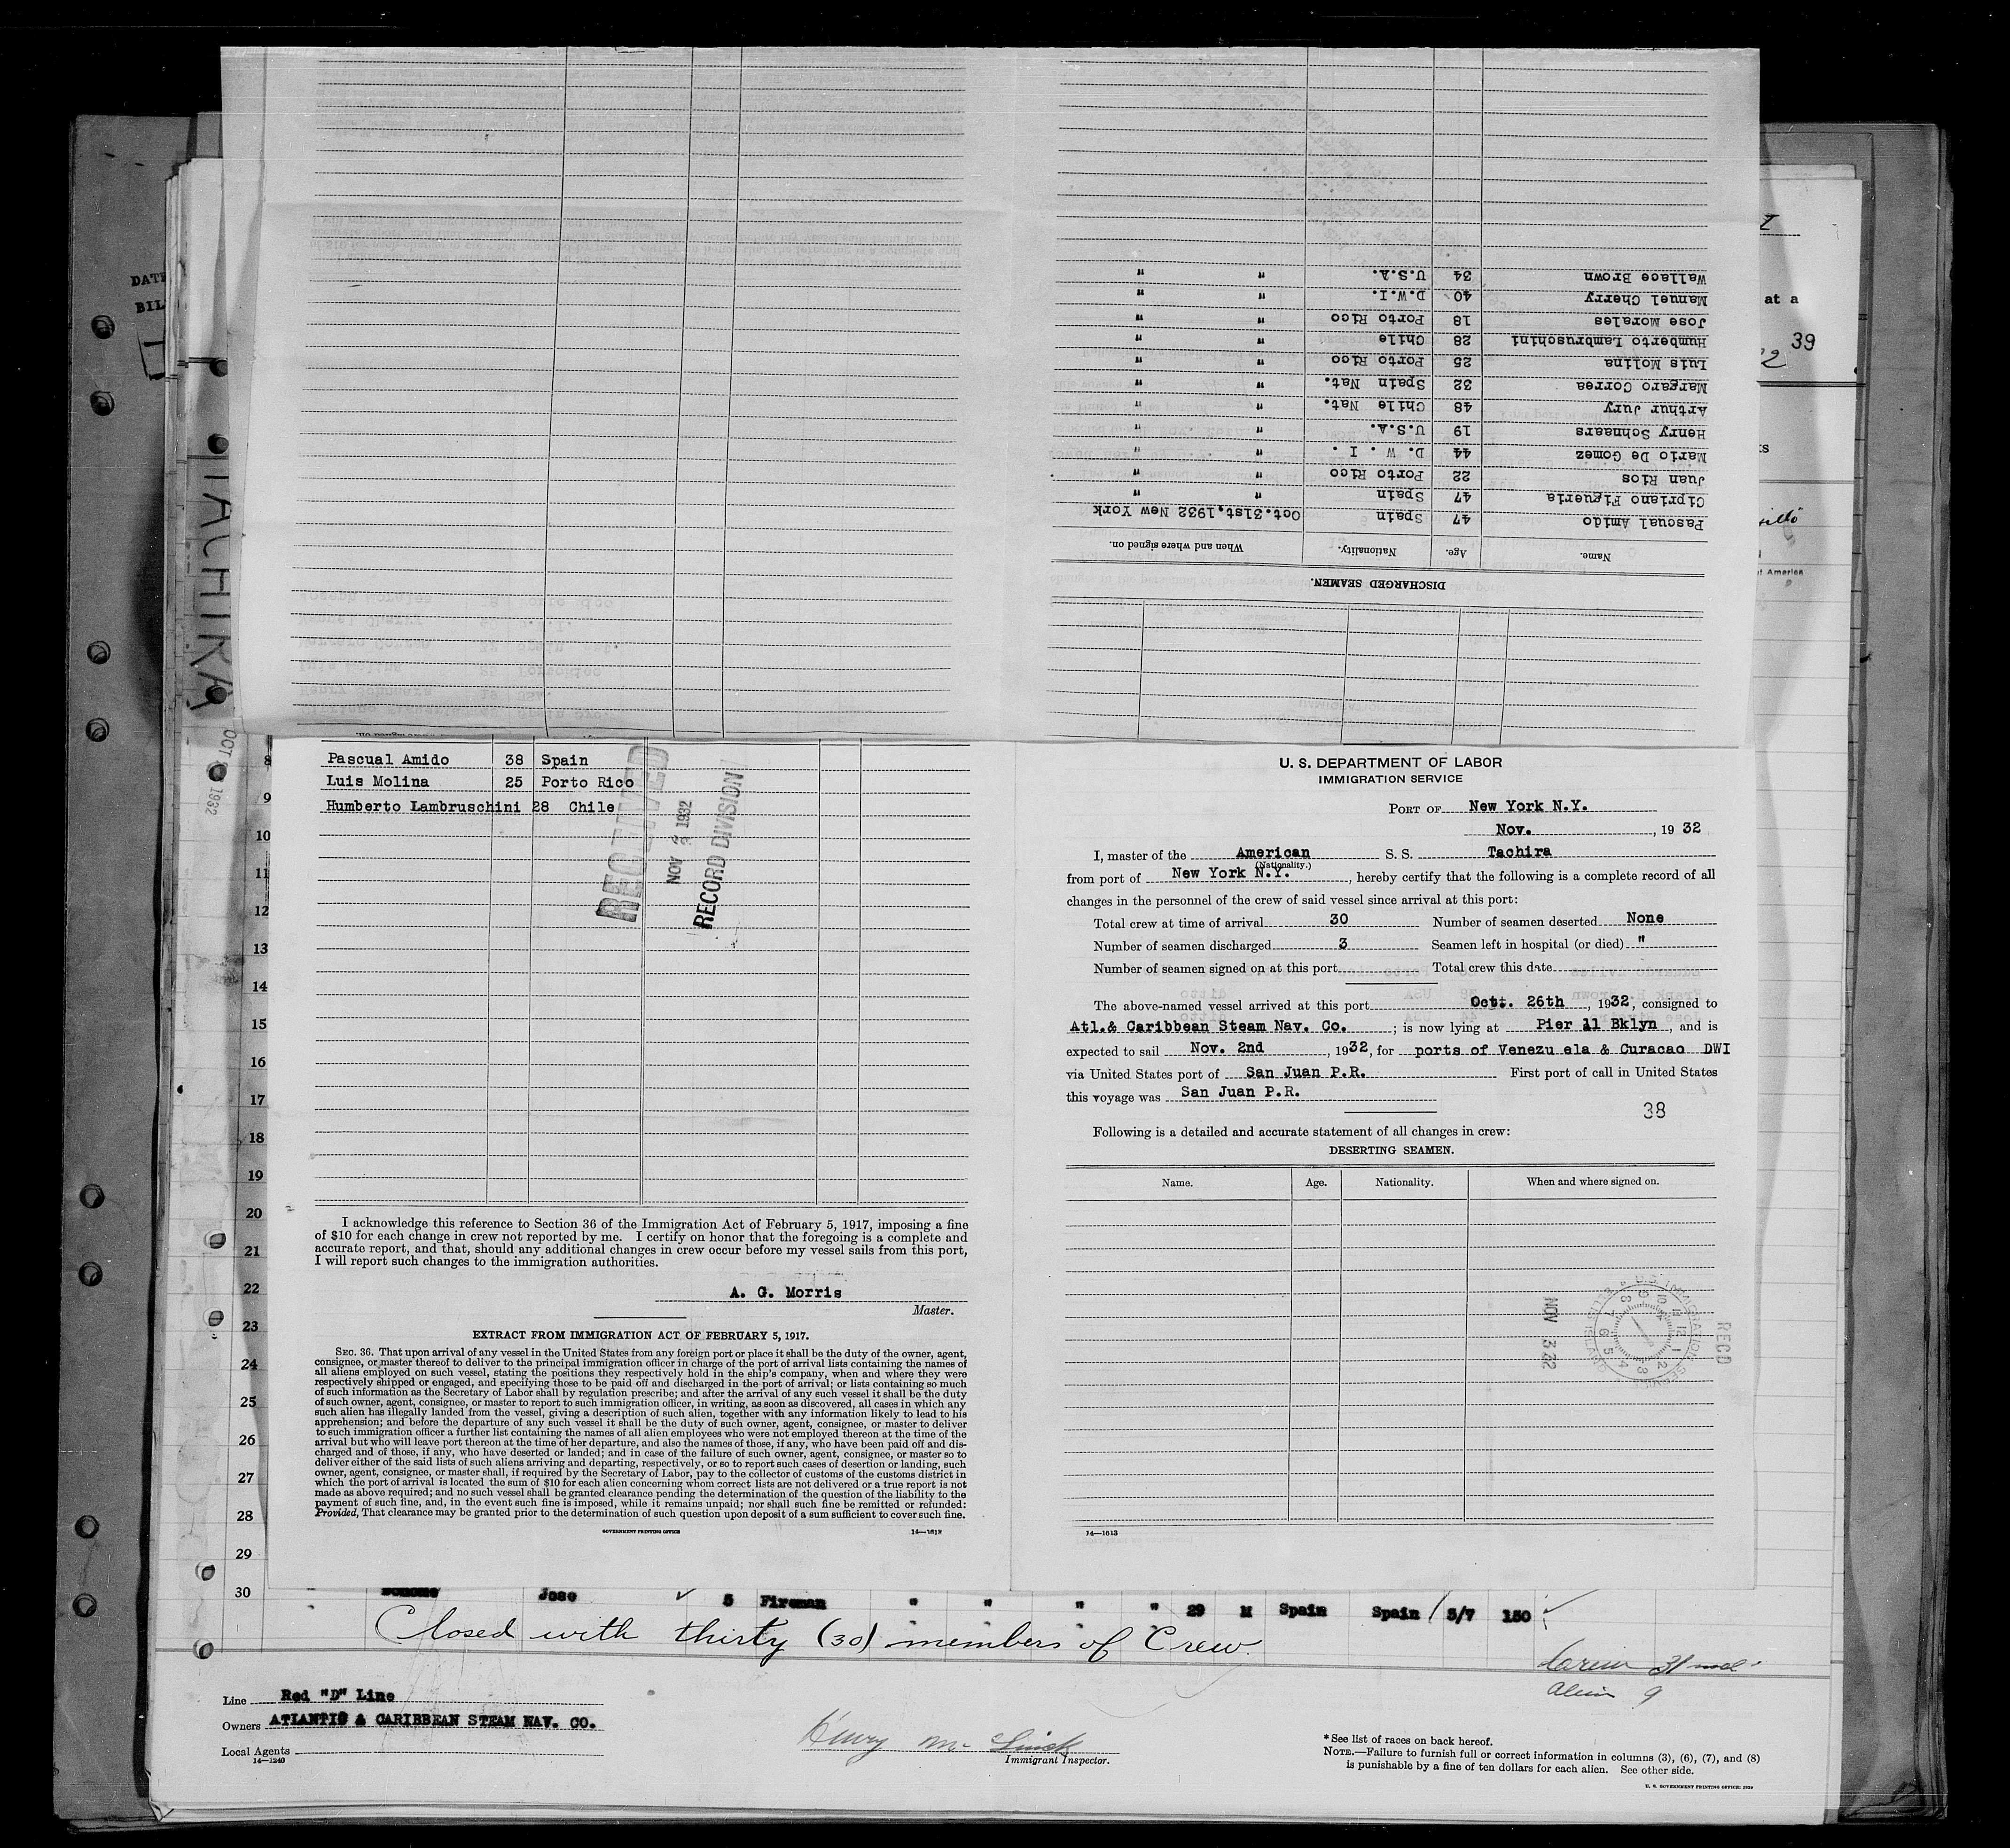 DISCHARGED SEAMEN.
Name. Age. Nationality. When and where signed on.
Pascual Amido 47 Spain Oct.31st,1932 New York
Cipriano Figueria 47 Spain " "
Juan Rios 22 Porto Rico " "
Mario De Gomez 44 D. W . I . " "
Henry Schnaars 19 U.S.A. " "
Arthur Jury 48 Chile Nat. " "
Margaro Correa 32 Spain Nat. " "
Luis Molina 25 Porto Rico " "
Humberto Lambruschini 28 Chile " "
Jose Morales 18 Porto Rico " "
Manuel Cherry 40 D.W.I. " "
Wallace Brown 34 U.S.A. " "
at a
39
TACHIRA
OCT 1932
Pascual Amido 38 Spain
Luis Molina 25 Porto Rico
Humberto Lambruschini 28 Chile
RECEIVED
NOV 3 1932
RECORD DIVISION
8
9
10
11
12
13
14
15
16
17
18
19
20
21
22
23
24
25
26
27
28
29
30
I acknowledge this reference to Section 36 of the Immigration Act of February 5, 1917, imposing a fine
of $10 for each change in crew not reported by me. I certify on honor that the foregoing is a complete and
accurate report, and that, should any additional changes in crew occur before my vessel sails from this port,
I will report such changes to the immigration authorities.
A. G. Morris
Master.
EXTRACT FROM IMMIGRATION ACT OF FEBRUARY 5, 1917.
SEC. 36. That upon arrival of any vessel in the United States from any foreign port or place it shall be the duty of the owner, agent,
consignee, or master thereof to deliver to the principal immigration officer in charge of the port of arrival lists containing the names of
all aliens employed on such vessel, stating the positions they respectively hold in the ship's company, when and where they were
respectively shipped or engaged, and specifying those to be paid off and discharged in the port of arrival; or lists containing so much
of such information as the Secretary of Labor shall by regulation prescribe; and after the arrival of any such vessel it shall be the duty
of such owner, agent, consignee, or master to report to such immigration officer, in writing, as soon as discovered, all cases in which any
such alien has illegally landed from the vessel, giving a description of such alien, together with any information likely to lead to his
apprehension; and before the departure of any such vessel it shall be the duty of such owner, agent, consignee, or master to deliver
to such immigration officer a further list containing the names of all alien employees who were not employed thereon at the time of the
arrival but who will leave port thereon at the time of her departure, and also the names of those, if any, who have been paid off and dis-
charged and of those, if any, who have deserted or landed; and in case of the failure of such owner, agent, consignee, or master so to
deliver either of the said lists of such aliens arriving and departing, respectively, or so to report such cases of desertion or landing, such
owner, agent, consignee, or master shall, if required by the Secretary of Labor, pay to the collector of customs of the customs district in
which the port of arrival is located the sum of $10 for each alien concerning whom correct lists are not delivered or a true report is not
made as above required; and no such vessel shall be granted clearance pending the determination of the question of the liability to the
payment of such fine, and, in the event such fine is imposed, while it remains unpaid; nor shall such fine be remitted or refunded:
Provided, That clearance may be granted prior to the determination of such question upon deposit of a sum sufficient to cover such fine.
GOVERNMENT PRINTING OFFICE 14—1613
U. S. DEPARTMENT OF LABOR
IMMIGRATION SERVICE
PORT OF New York N.Y.
Nov. , 1932
I, master of the American S. S. Tachira
(Nationality.)
from port of New York N.Y. , hereby certify that the following is a complete record of all
changes in the personnel of the crew of said vessel since arrival at this port:
Total crew at time of arrival 30 Number of seamen deserted None
Number of seamen discharged 3 Seamen left in hospital (or died) "
Number of seamen signed on at this port Total crew this date
The above-named vessel arrived at this port Oct. 26th , 1932, consigned to
Atl.& Caribbean Steam Nav. Co. ; is now lying at Pier 11 Bklyn , and is
expected to sail Nov. 2nd , 1932, for ports of Venezu ela & Curacao DWI
via United States port of San Juan P.R. First port of call in United States
this voyage was San Juan P.R.
38
Following is a detailed and accurate statement of all changes in crew:
DESERTING SEAMEN.
Name. Age. Nationality. When and where signed on.
RECD
NOV 3 32
14—1613
Jose 5 Fireman " " " " 29 M Spain Spain 5/7 150
Closed with thirty (30) members of Crew.
Line Red "D" Line
Owners ATLANTIC & CARIBBEAN STEAM NAV. CO.
Local Agents
14—1240
Immigrant Inspector.
* See list of races on back hereof.
NOTE.—Failure to furnish full or correct information in columns (3), (6), (7), and (8)
is punishable by a fine of ten dollars for each alien. See other side.
U. S. GOVERNMENT PRINTING OFFICE: 1929